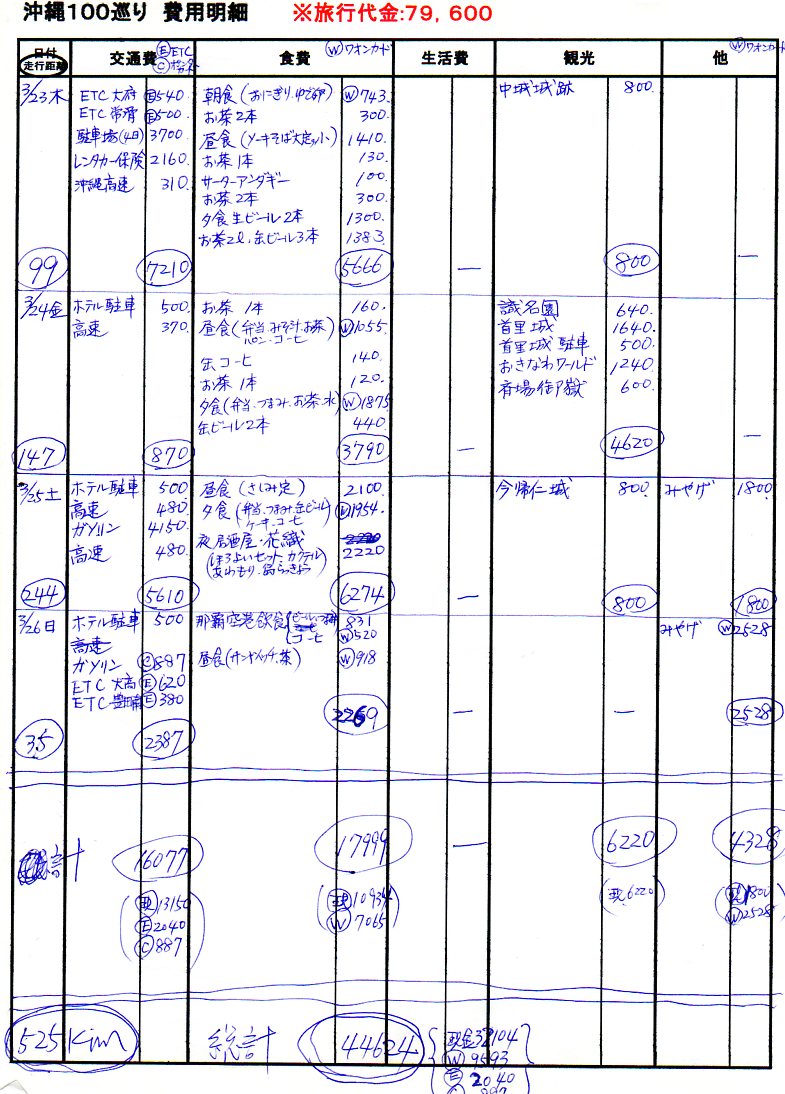 沖縄100巡り 費用明細 ※旅行代金:79,600
日付 走行距離 交通費 ⒺETC Ⓒ 食費 Ⓦワオンカード 生活費 観光 他 Ⓦワオンカード
3/23木 ETC 大府 Ⓔ540 朝食(おにぎり.ゆで卵) Ⓦ743. 中城城跡 800.
ETC 常滑 Ⓔ500. お茶2本 300.
駐車場(4日) 3700 昼食(ソーキそば大定. 小) 1410.
レンタカー保険 2160. お茶1本 130.
沖縄高速 310. サーターアンダギー 100.
お茶2本 300.
夕食生ビール2本 1300.
お茶2ℓ.缶ビール3本 1383.
99 7210 5666 — 800 —
3/24金 ホテル駐車 500. お茶 1本 160. 識名園 640.
高速 370. 昼食(弁当.みそ汁.お茶 パン.コーヒ) Ⓦ1055. 首里城 1640.
首里城 駐車 500.
缶コーヒ 140. おきなわワールド 1240.
お茶 1本 120. 斎場御嶽 600.
夕食(弁当.つまみ.お茶.水) Ⓦ1875
缶ビール2本 440.
147 870 3790 — 4620 —
3/25土 ホテル駐車 500 昼食(さしみ定) 2100. 今帰仁城 800. みやげ 1800
高速 480. 夕食(弁当.つまみ缶ビール ケーキ.コーヒ) Ⓦ1954.
ガソリン 4150. 夜居酒屋・花織 2220
高速 480. (ほろよいセット.カクテル 2220
あわもり.島らっきょう)
244 5610 6274 — 800 1800
3/26日 ホテル駐車 500 那覇空港飲食(ビール.つまみ 831 みやげ Ⓦ2528
高速 コーヒ Ⓦ520
ガソリン Ⓒ887 昼食(サンドイッチ.茶) Ⓦ918
ETC 大高 Ⓔ620
ETC 豊明 Ⓔ380
35 2387 2269 — — 2528
総計 16077 17999 — 6220 4328
(現13150 (現10934 (現6220) (現1800
Ⓔ2040 Ⓦ7065) Ⓦ2528)
Ⓒ887)
525Km 総計 44624 {現金32104
Ⓦ9593
Ⓔ2040
Ⓒ887